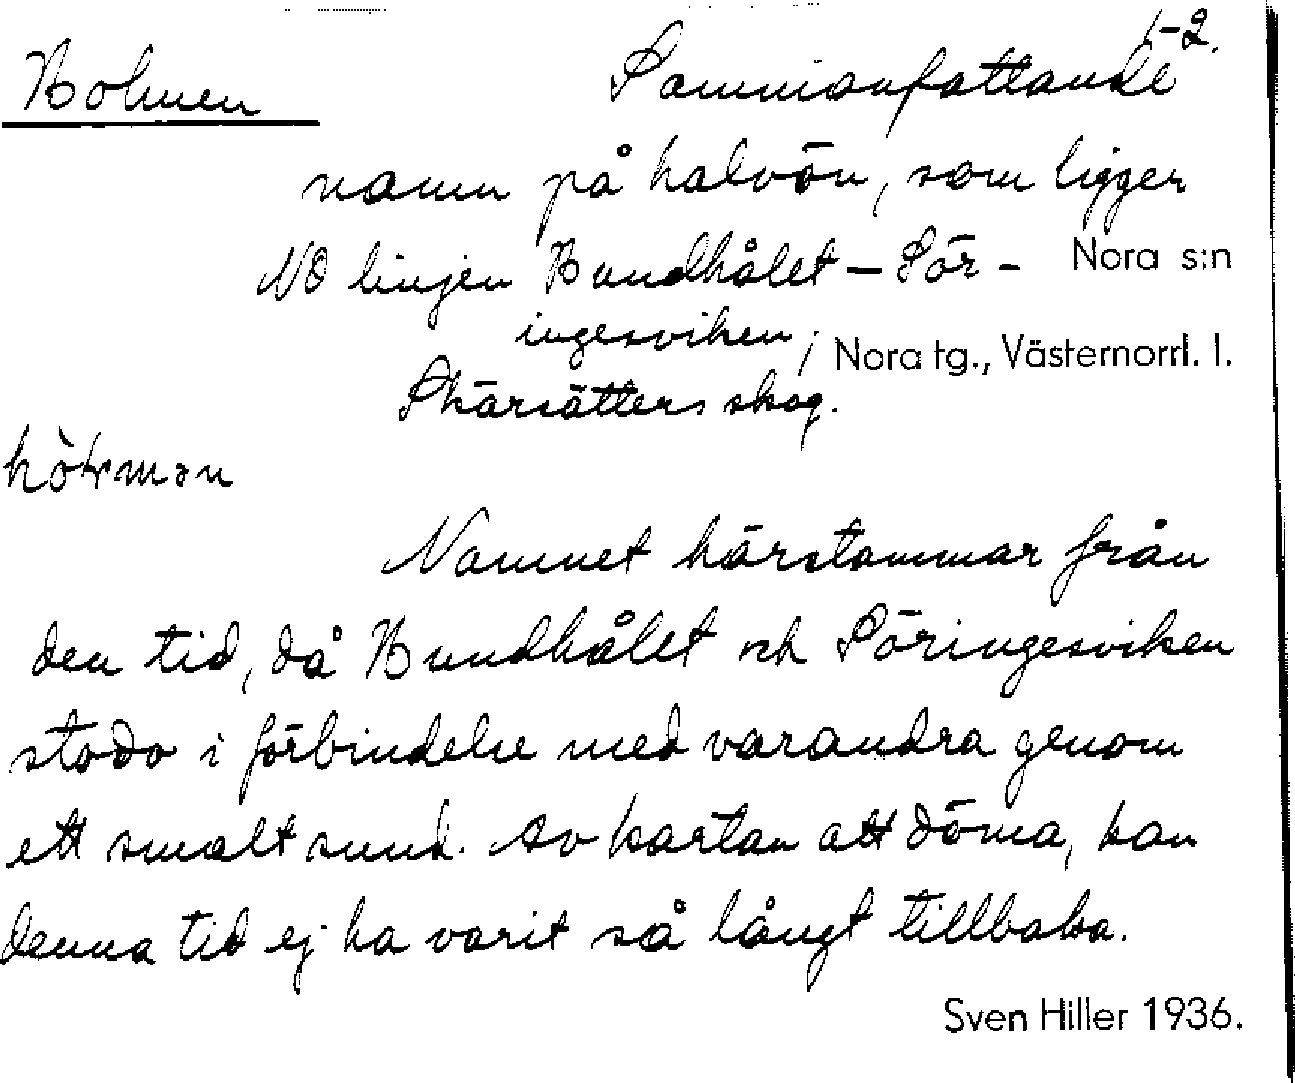 1-2.
Holmen Sammanfattande
namn på halvön, som ligger
NO linjen Hundhålet – Sör- Nora s:n
ingesviken; Nora tg., Västernorrl. l.
Skärsätters skog.
hòɽmən
Namnet härstammar från
den tid, då Hundhålet och Söringesviken
stodo i förbindelse med varandra genom
ett smalt sund. Av kartan att döma, kan
denna tid ej ha varit så långt tillbaka.
Sven Hiller 1936.